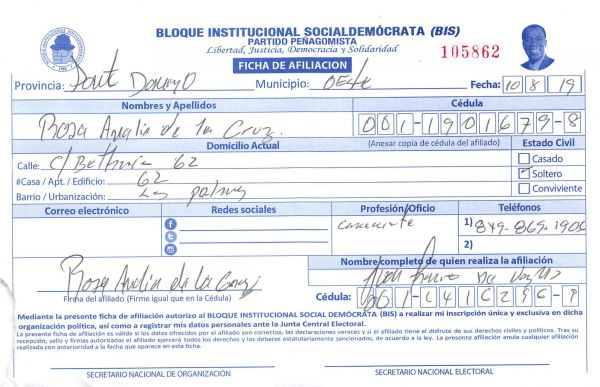 BLOQUE INSTITUCIONAL SOCIALDEMÓCRATA (BIS)
PARTIDO PEÑAGOMISTA
Libertad, Justicia, Democracia y Solidaridad
FICHA DE AFILIACION
105862
Provincia: Sont Domingo Municipio: OESTE Fecha: 10 8 19
Nombres y Apellidos Cédula
Rosa Analia de la Cruz. 001-1901679-8
Domicilio Actual (Anexar copia de cédula del afiliado) Estado Civil
Calle: C/ Bethania 62 Casado
#Casa / Apt. / Edificio: 62 Soltero
Barrio / Urbanización: Las palmas Conviviente
Correo electrónico Redes sociales Profesión/Oficio Teléfonos
Comerciante 1) 849-869-190
2)
Nombre/completo de quien realiza la afiliación
Rosa Analia de la Cruz
Firma del afiliado (Firme igual que en la Cédula)
Cédula: 001-1416296-9
Mediante la presente ficha de afiliación autorizo al BLOQUE INSTITUCIONAL SOCIAL DEMÓCRATA (BIS) a realizar mi inscripción única y exclusiva en dicha
organización política, así como a registrar mis datos personales ante la Junta Central Electoral.
La presente ficha de afiliación es válida si los datos ofrecidos por el afiliado son correctos, las declaraciones veraces y si el afiliado tiene el disfrute de sus derechos civiles y políticos. Tras su
recepción, sello y firmas autorizadas el afiliado ejercerá todos los derechos y los deberes estatutariamente sancionados, de acuerdo a la ley. La presente afiliación anula cualquier afiliación
realizada con anterioridad a la fecha que aparece en esta ficha.
SECRETARIO NACIONAL DE ORGANIZACIÓN SECRETARIO NACIONAL ELECTORAL